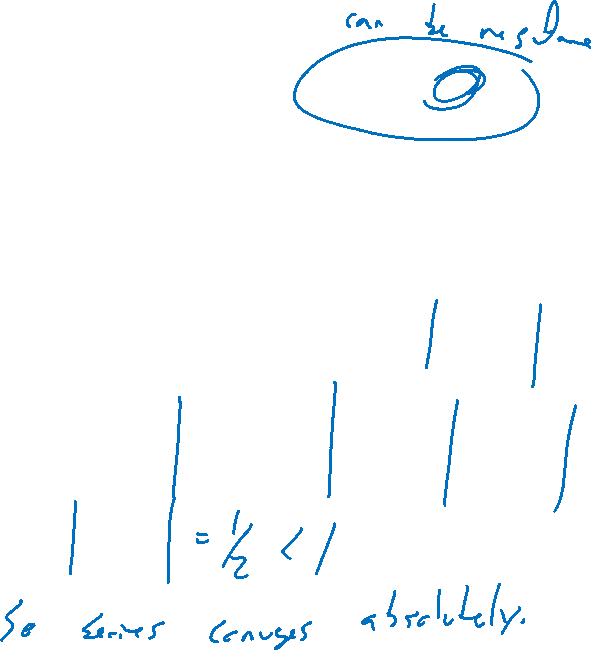 can be negative
| |
| | | |
| | = 1/2 < 1
So series converges absolutely.